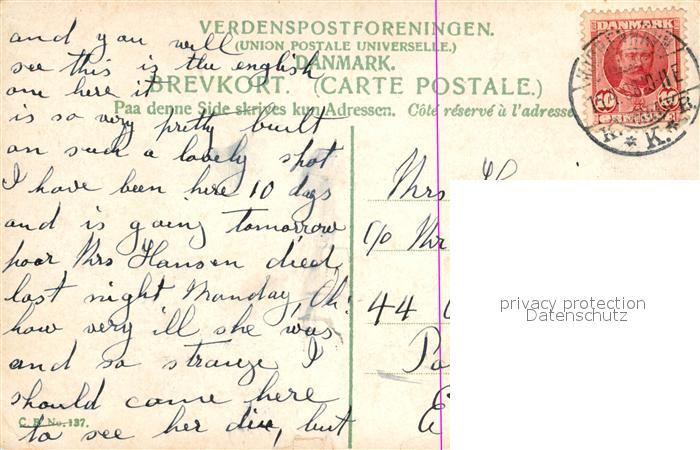 VERDENSPOSTFORENINGEN.
(UNION POSTALE UNIVERSELLE.)
DANMARK.
BREVKORT. (CARTE POSTALE.)
Paa denne Side skrives kun Adressen. Côté réservé à l'adresse
and you will
see this is the english
one here it
is so very pretty built
on such a lovely spot
I have been here 10 days
and is going tomorrow
poor Mrs Hansen died,
last night Monday, Oh!
how very ill she was
and so strange I
should come here
to see her die, but
C. R. No. 137.
DANMARK
K.
Mrs H
c/o Mr
44
Po
E
privacy protection
Datenschutz